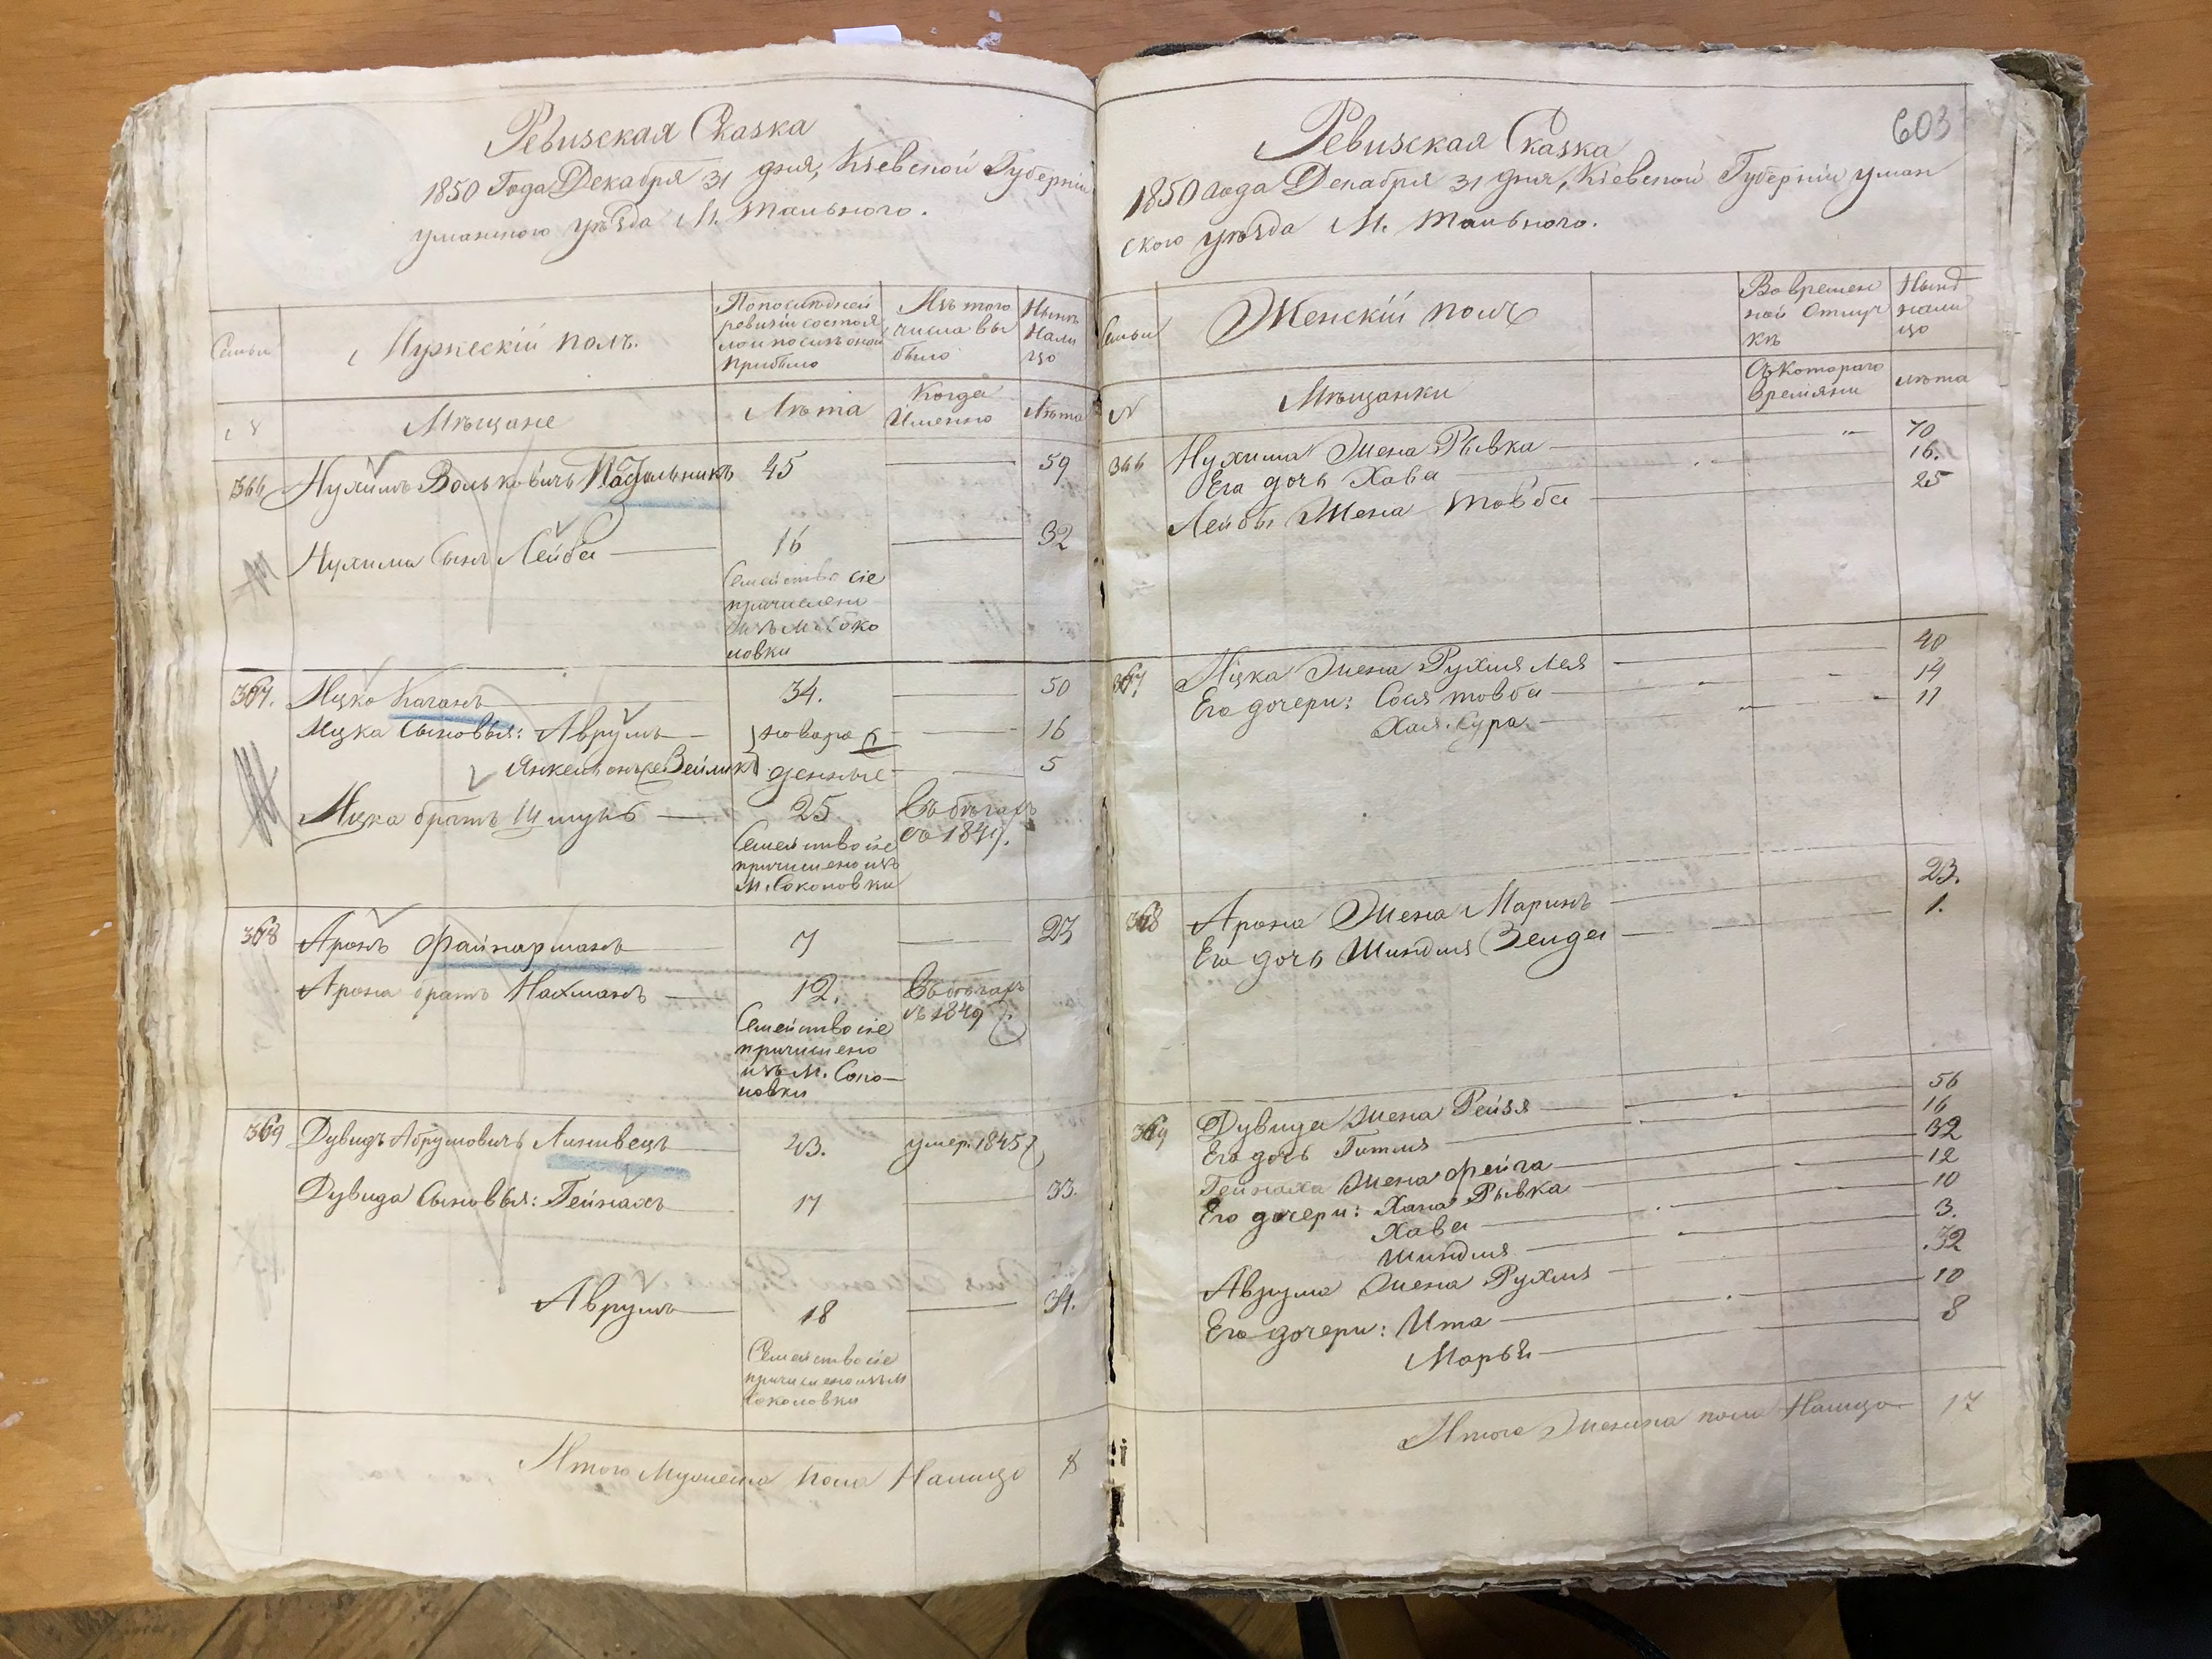 Ревизская Сказка
1850 Года Декабря 31 дня, Кіевской Губерніи
уманского уѣзда М. Тального.
Семьи
Мужескій полъ.
По послѣдней
ревизіи состоя
ло и послѣ оной
прибыло
Изъ того
числа вы
было
Нынѣ
Нали
цо
№
Мѣщане
Лѣта
Когда
Именно
Лѣта
366 Нухимъ Вольковичъ 45 59
Нухима Сынъ Лейба 16 32
Семейство сіе
причислено
изъ м. Соко
ловки
367. Ицко Каганъ 34. 50
Ицка Сыновья: Аврумъ 16
5
Ицка братъ Шмуль 25 Въ бѣгахъ
съ 1849.
Семейство сіе
причислено изъ
М. Соколовки
368 Аронъ Файнарманъ 7 23
Арона братъ Нахманъ 12. Въ бѣгахъ
съ 1849
Семейство сіе
причислено
изъ М. Соко-
ловки
369 Дувидъ Абрумовичъ Линивецъ 43. умер. 1845
Дувида Сыновья: Гейнахъ 17 33.
Аврумъ 18 34.
Семейство сіе
причислено изъ М
Соколовки
Итого Мужеска пола Налицо 8
603
Ревизская Сказка
1850 года Декабря 31 дня, Кіевской Губерніи уман
ского уѣзда М. Тального.
Семьи
Женскій полъ
Во времен
ной отлуч
кѣ
Нынѣ
нали
цо
№
Мѣщанки
Съ котораго
времяни
лѣта
366 Нухима Жена Рывка 70
Его дочь Хава 16.
Лейбы Жена Товба 25
367 Ицка Жена Рухля Лея 40
Его дочери: Сося товба 14
Хая. Сура. 11
368 Арона Жена Маримъ 23.
Его дочь Шиндля Зелда 1.
369 Дувида Жена Рейзя 56
Его дочь Гитля 16
Гейнаха Жена Фейга 32
Его дочери: Хана Рывка 12
Хава 10
Шиндля 3.
Аврума Жена Рухля 32
Его дочери: Ита 10
Марья 8
Итого Женска пола Налицо 17